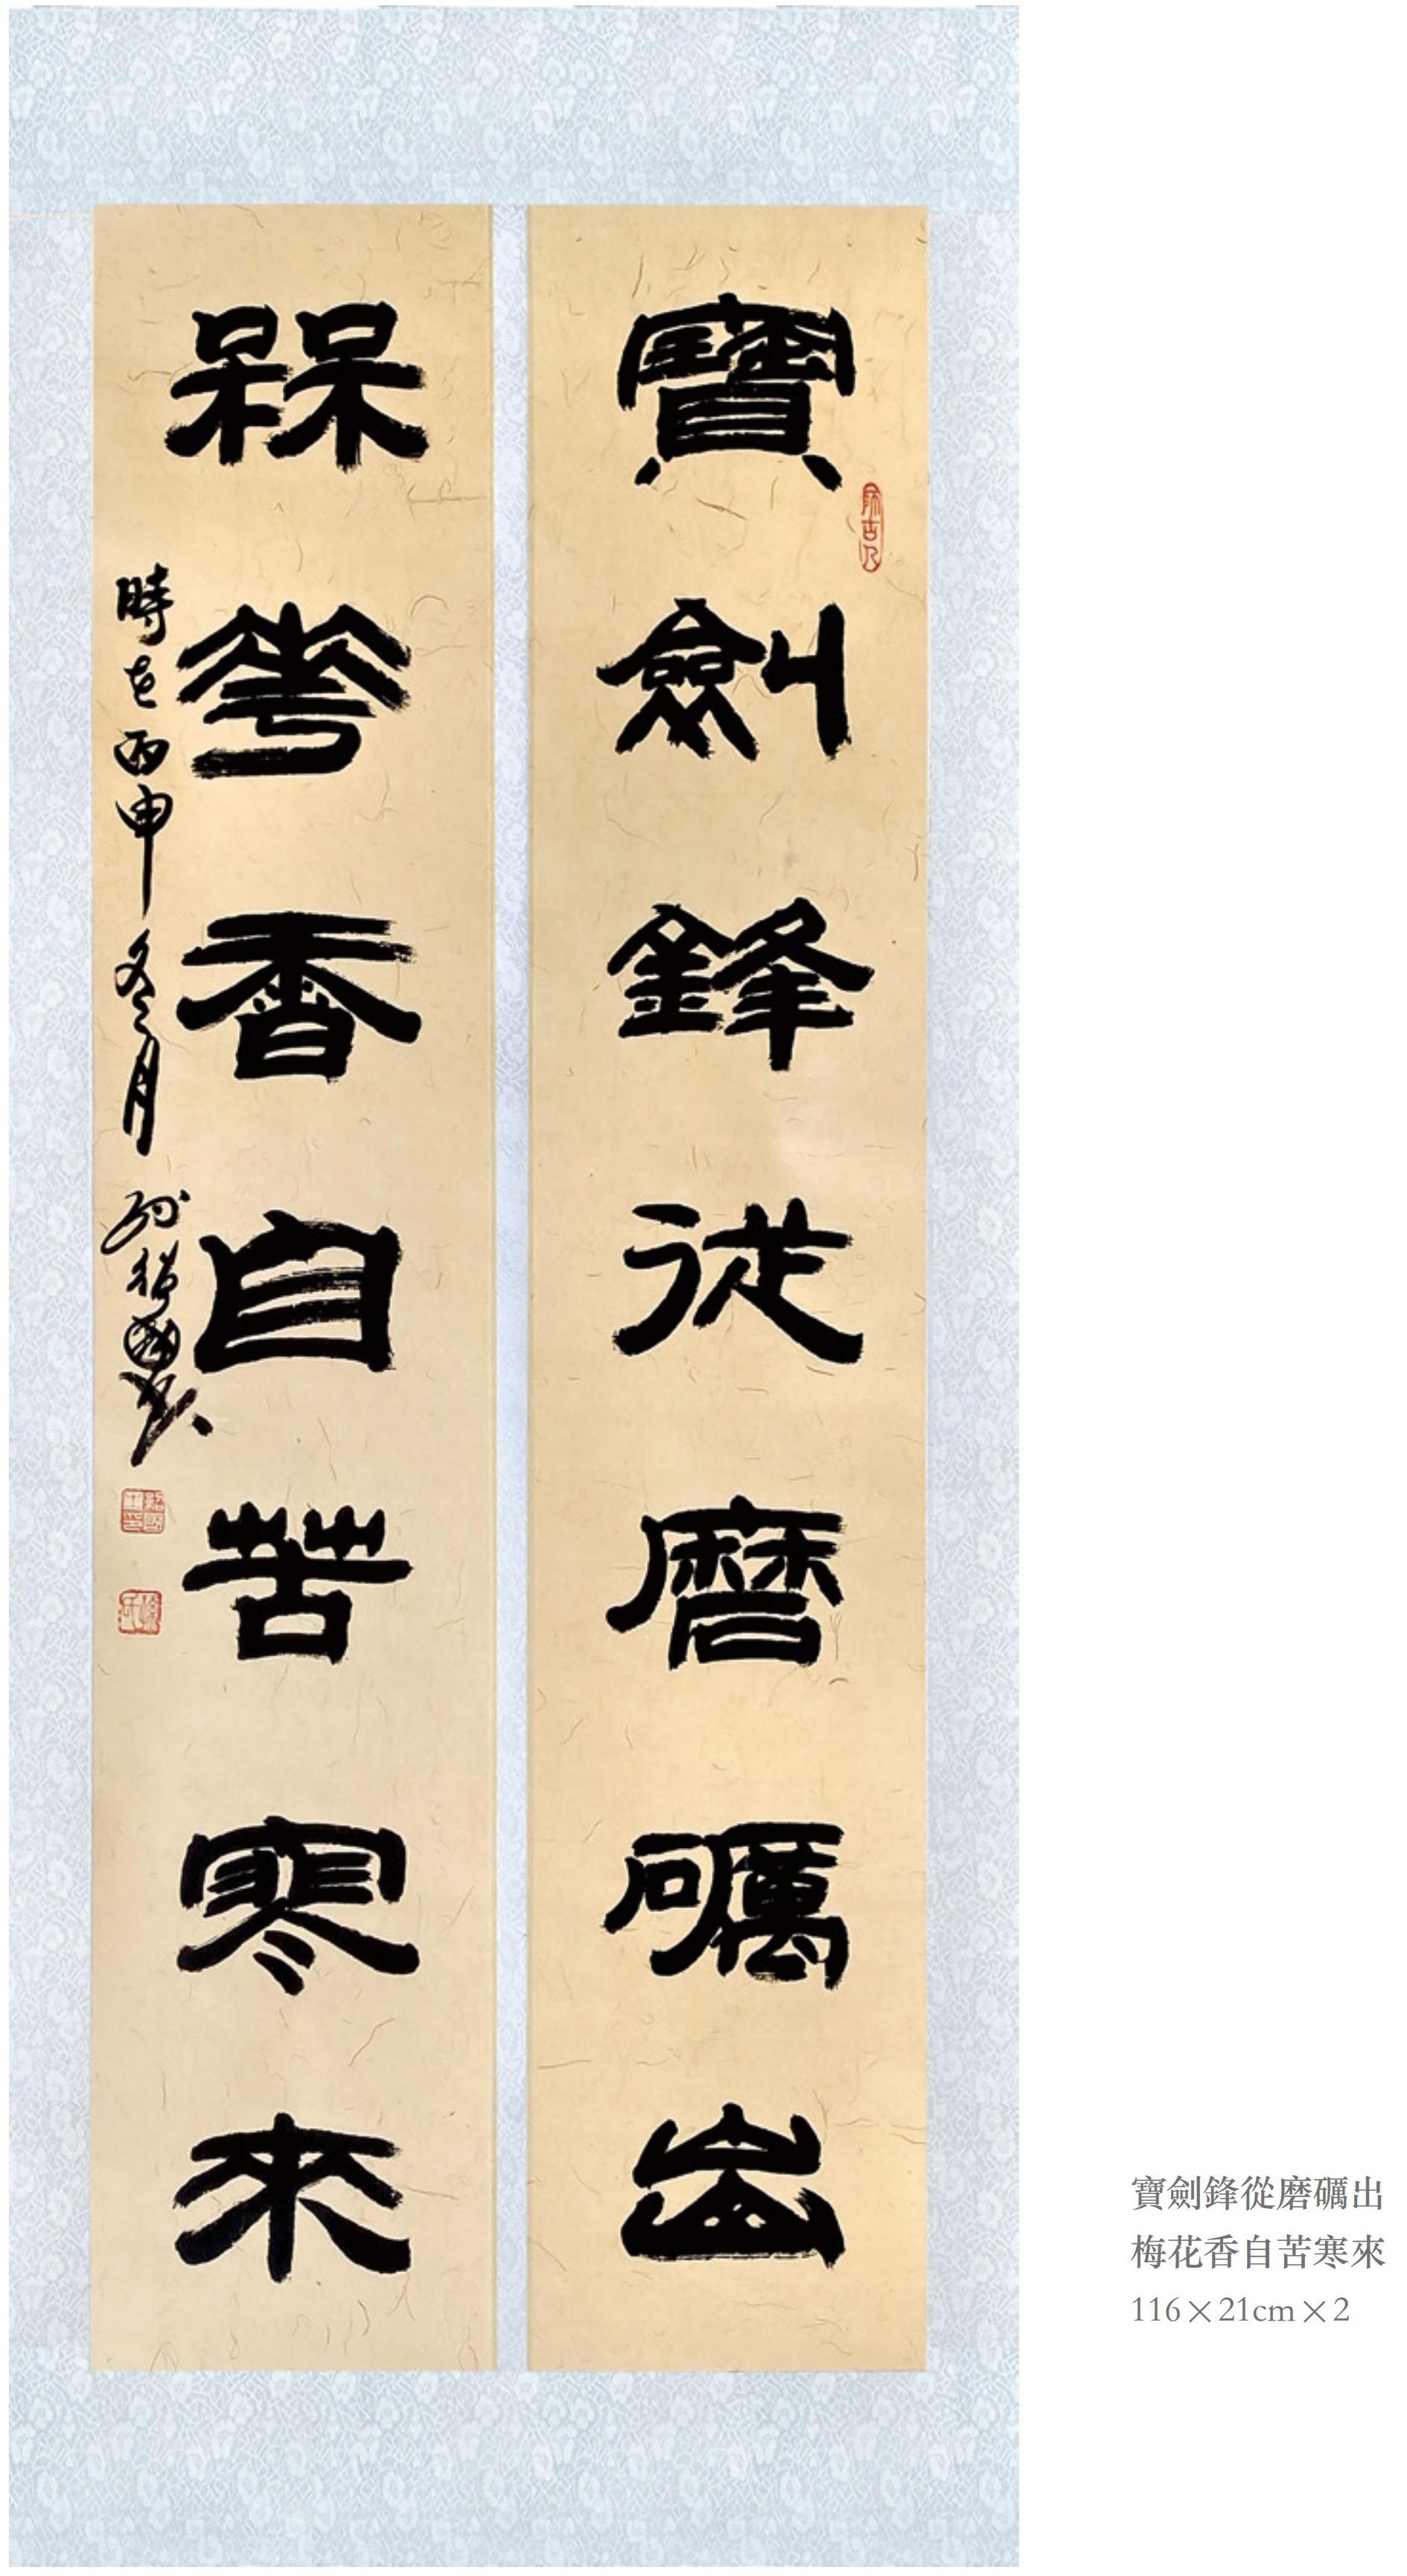 寶劍鋒從磨礪出
槑花香自苦寒來
時在丙申冬月
寶劍鋒從磨礪出
梅花香自苦寒來
116×21cm×2